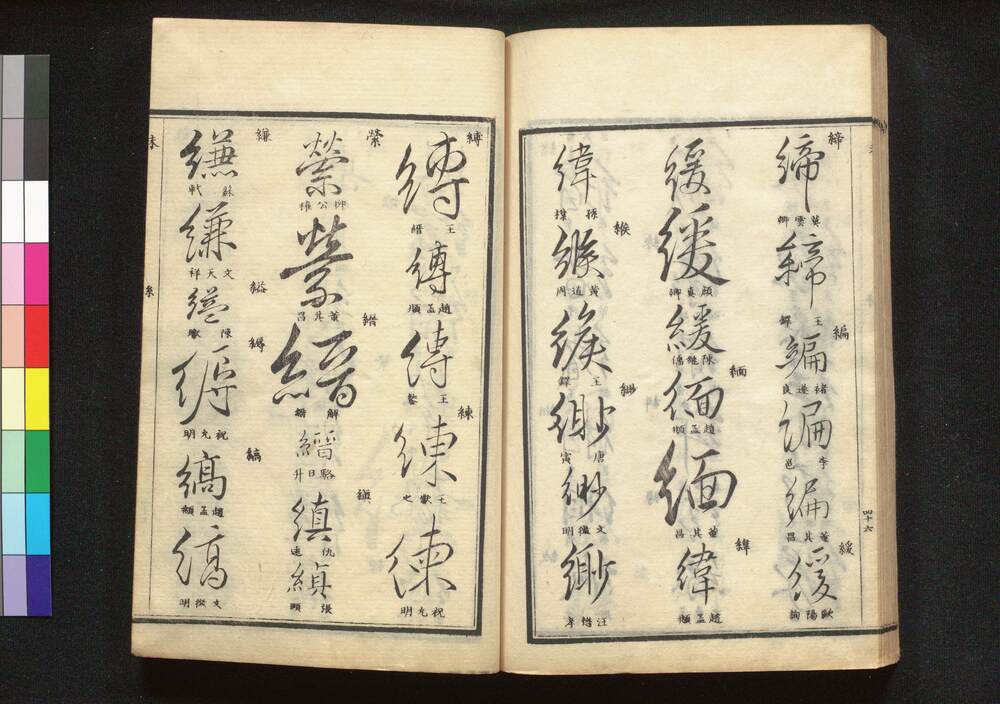 締
締
龔雲卿
締
王鐸
編
編
褚遂良
編
李邕
編
董其昌
緩
緩
歐陽詢
四十六
緩
緩
顏真卿
緩
陳繼儒
緬
緬
趙孟頫
緬
董其昌
緯
緯
趙孟頫
緯
孫
緱
緱
黃道周
緱
王鐸
緲
緲
唐寅
緲
文徵明
緲
汪
縛
縛
王
縛
趙孟頫
縛
王
練
練
王獻之
練
祝允明
縈
縈
柳公權
縈
董其昌
縉
縉
解縉
縉
駱日升
縝
縝
仇遠
縝
張
縑
縑
蘇軾
縑
文天祥
縊
縊
陳
縟
縟
祝允明
縞
縞
趙孟頫
縞
文徵明